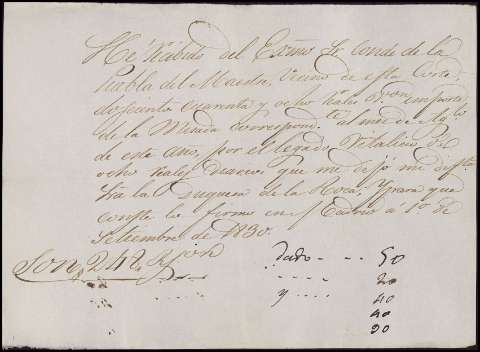 He Recibido del Exmo Sr Conde de la
Puebla del Maestre, Vecino de esta Corte,
doscientos quarenta y ocho Reales Von importe
de la Mesada correspondte al mes de Agto
de este año, por el legado Vitalicio de
ocho Reales diarios que me dejó mi
tra la Duquesa de la Roca, Ypara que
conste lo firmo en Madrid á 1º de
Setiembre de 1830.
Son 248 Rs von
dado - - - 50
- - - - 20
y - - - - 40
40
90